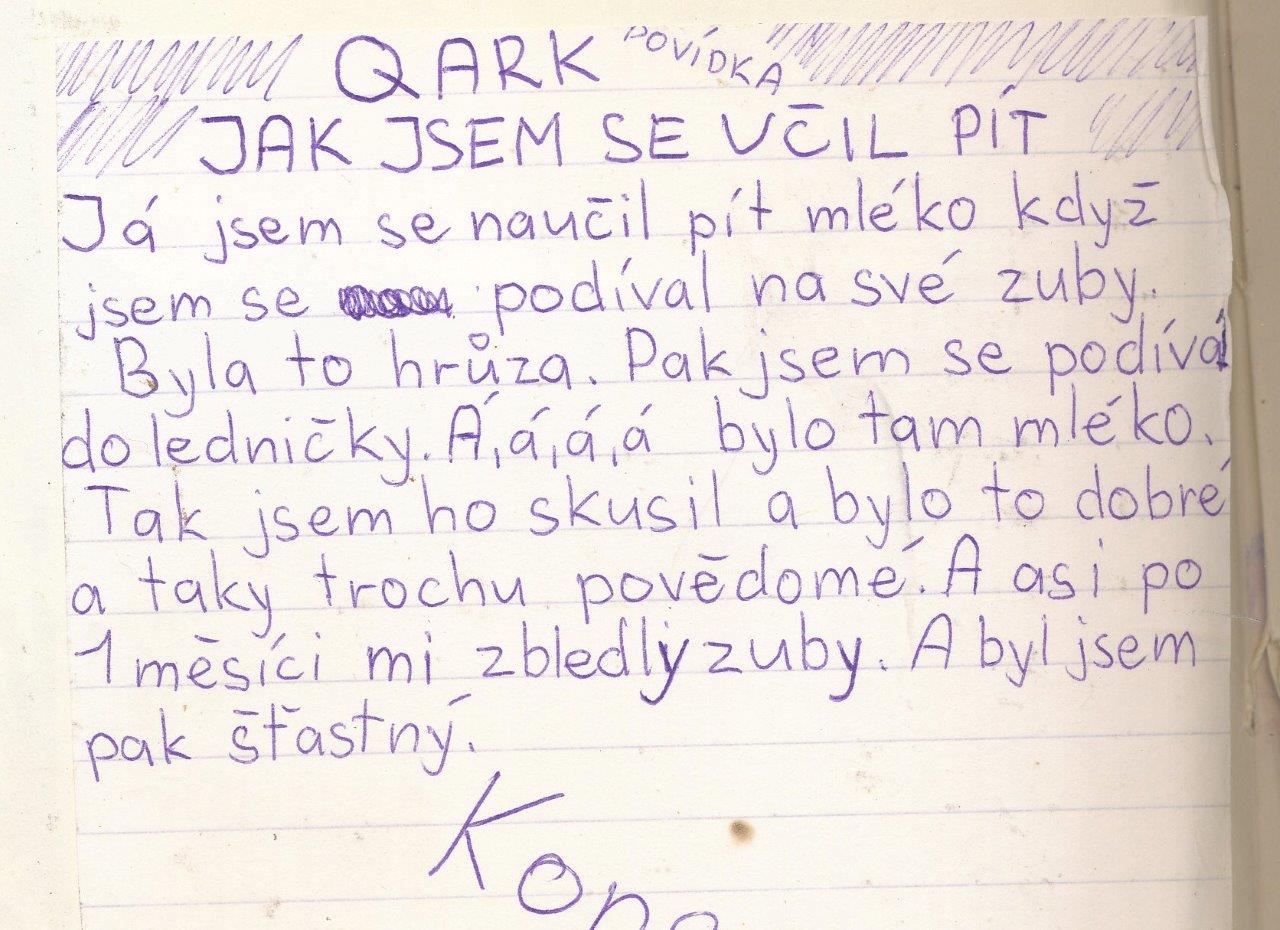 QARK POVÍDKA
JAK JSEM SE UČIL PÍT
Já jsem se naučil pít mléko když
jsem se podíval na své zuby.
Byla to hrůza. Pak jsem se podíval
do ledničky. Á,á,á,á bylo tam mléko.
Tak jsem ho skusil a bylo to dobré
a taky trochu povědomé. A asi po
1 měsíci mi zbledly zuby. A byl jsem
pak šťastný.